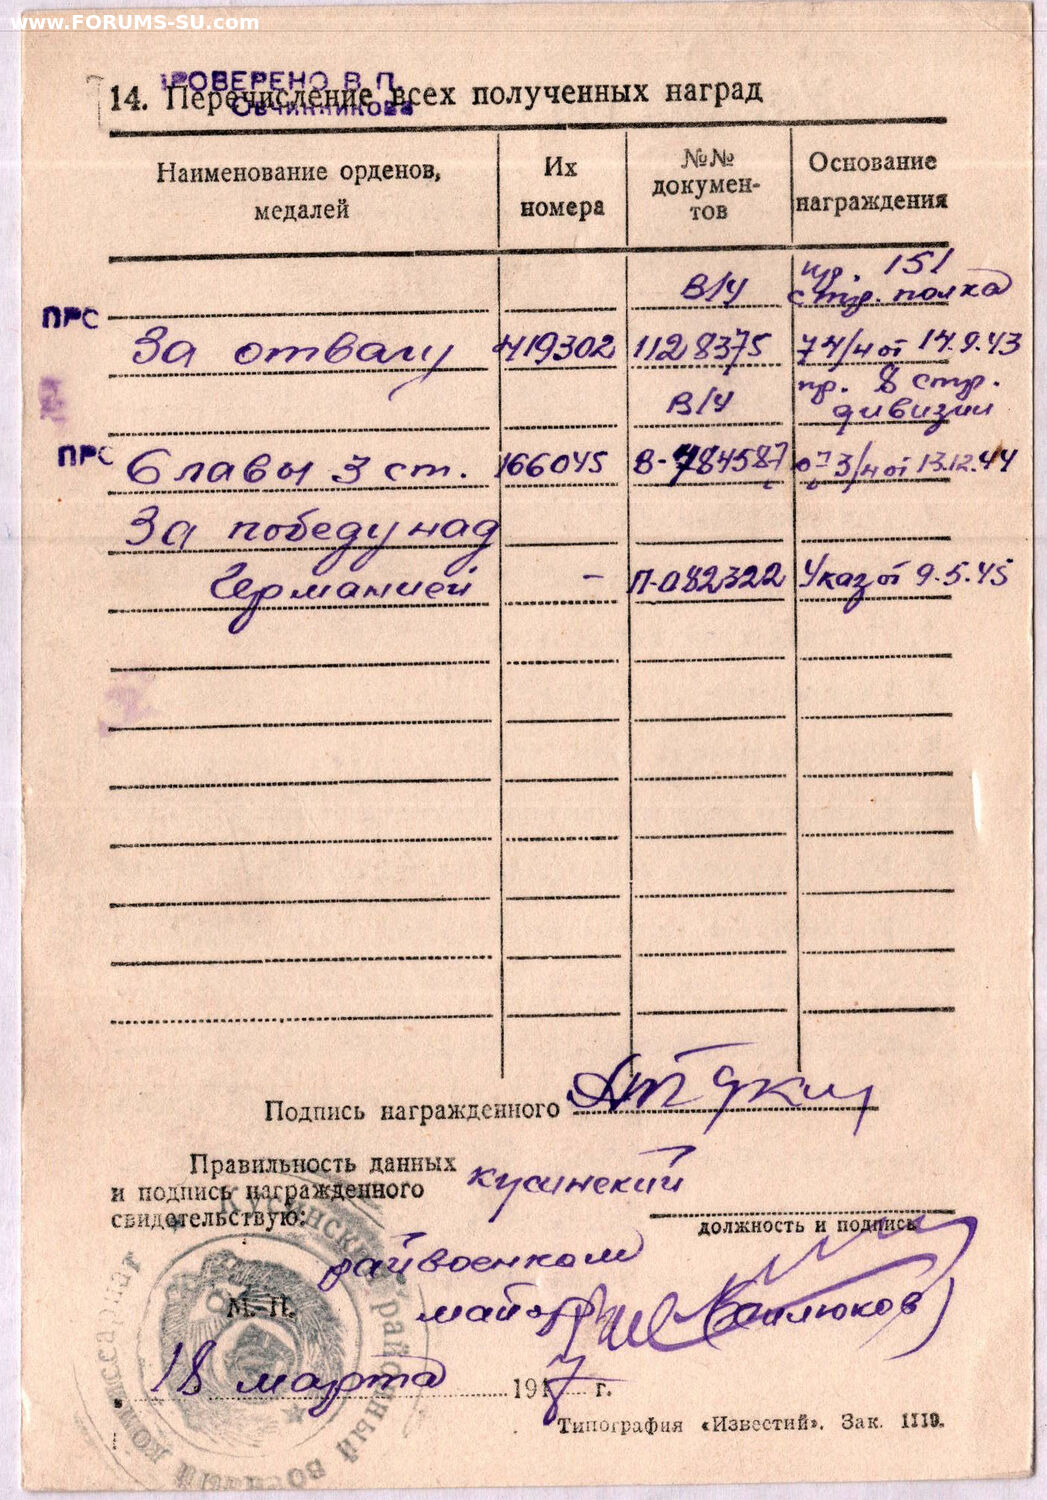 www.FORUMS-SU.com
ПРОВЕРЕНО В.П.
Овчинникова
14. Перечисление всех полученных наград
Наименование орденов, медалей
Их номера
№№ докумен-тов
Основание награждения
В/У пр. 151 стр. полка
ПРС
За отвагу 419302 1128375 74/н от 14.9.43
В/У пр. 8 стр. дивизии
ПРС
Славы 3 ст. 166045 В-784587 03/н от 13.12.44
За победу над
Германией – П-082322 Указ от 9.5.45
Подпись награжденного
Правильность данных
и подпись награжденного
свидетельствую:
Кусинский
должность и подпись
райвоенком
М. П.
майор
18 марта 1947 г.
Кусинский районный военный комиссариат
Типография «Известий». Зак. 1119.